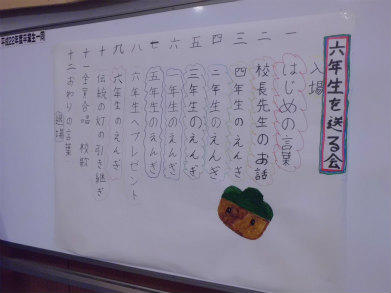 平成22年度卒業生一同
六年生を送る会
入場
一 はじめの言葉
二 校長先生のお話
三 四年生のえんぎ
四 二年生のえんぎ
五 三年生のえんぎ
六 一年生のえんぎ
七 五年生のえんぎ
八 六年生へプレゼント
九 六年生のえんぎ
十 伝統の灯の引き継ぎ
十一 全員合唱 校歌
十二 おわりの言葉
退場